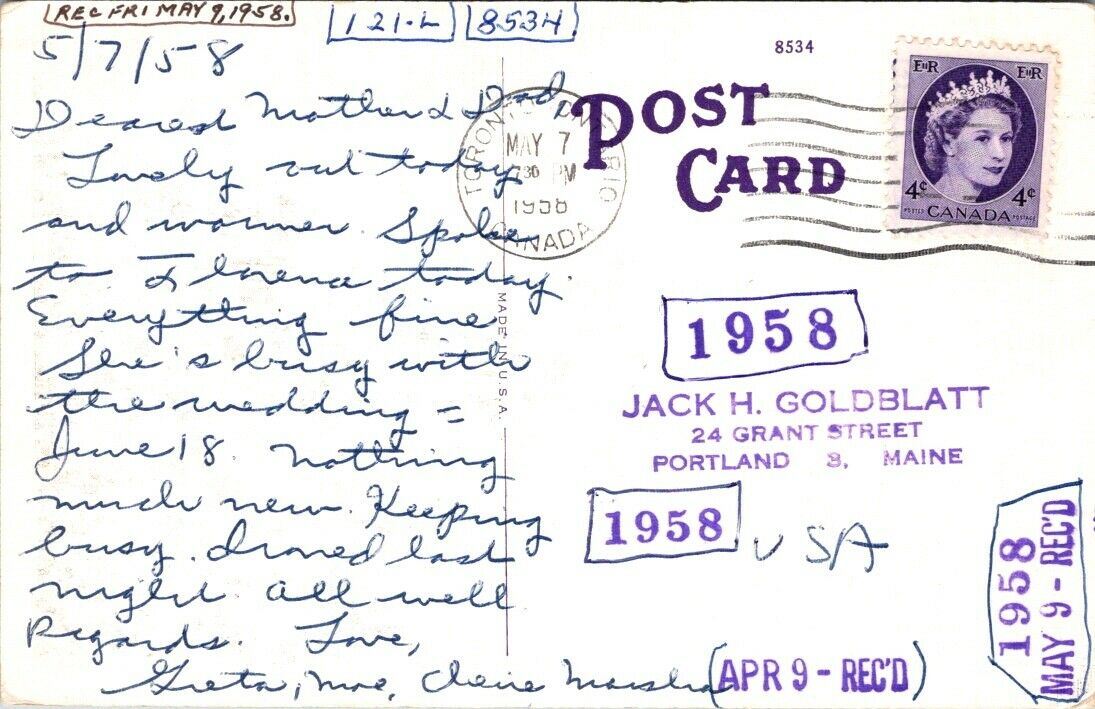 REC FRI MAY 9, 1958.
121-L
8534
5/7/58
Dearest Mother & Dad,
Lovely out today
and warmer. Spoke
to Florence today.
Everything fine
She's busy with
the wedding =
June 18. Nothing
much new. Keeping
busy. Ironed last
night. All well
Regards. Love,
Greta, Moe, Claire Marsha
8534
POST
CARD
TORONTO ONTARIO
MAY 7
30 PM
1958
CANADA
EIIR EIIR
4¢ 4¢
POSTES CANADA POSTAGE
MADE IN U.S.A.
1958
JACK H. GOLDBLATT
24 GRANT STREET
PORTLAND 3, MAINE
1958
USA
(APR 9 - REC'D)
1958
MAY 9 - REC'D